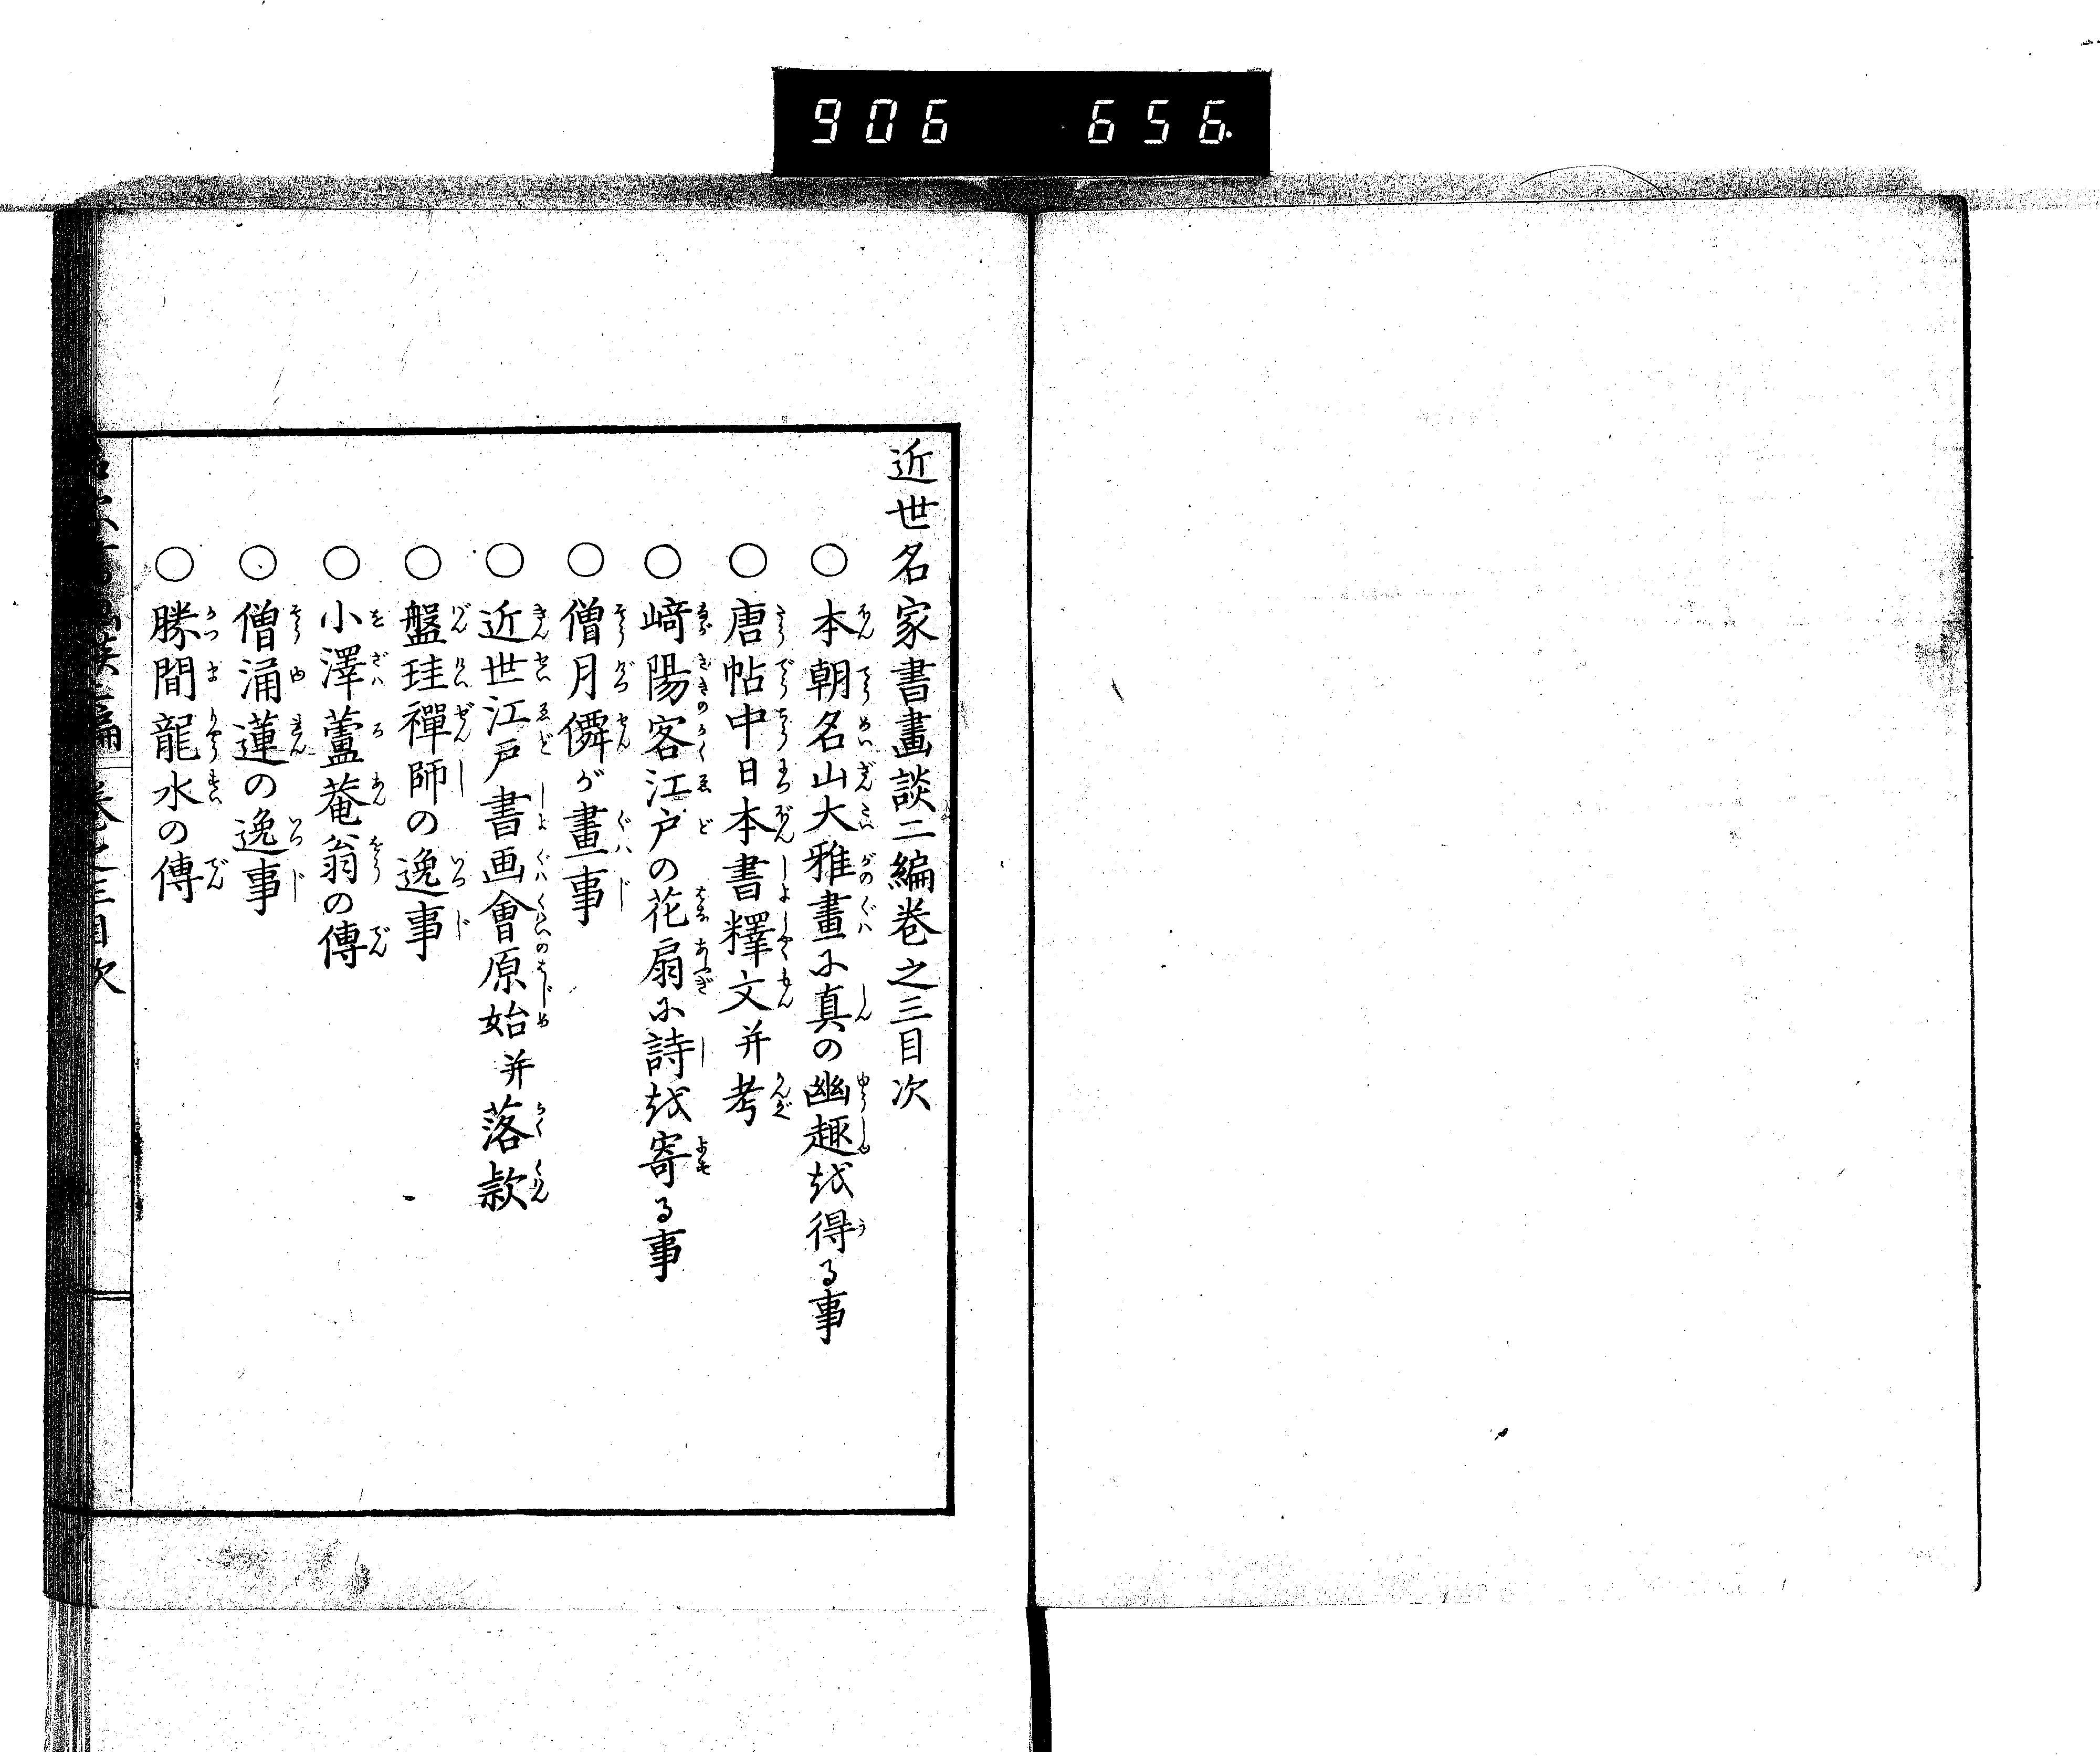 906 656.
近世名家書畫談二編巻之三目次
○本朝名山大雅畫に真の幽趣を得る事
○唐帖中日本書釋文并考
○﨑陽客江戸の花扇に詩を寄る事
○僧月僊が畫事
○近世江戸書画會原始并落款
○盤珪禪師の逸事
○小澤蘆菴翁の傳
○僧涌蓮の逸事
○勝間龍水の傳